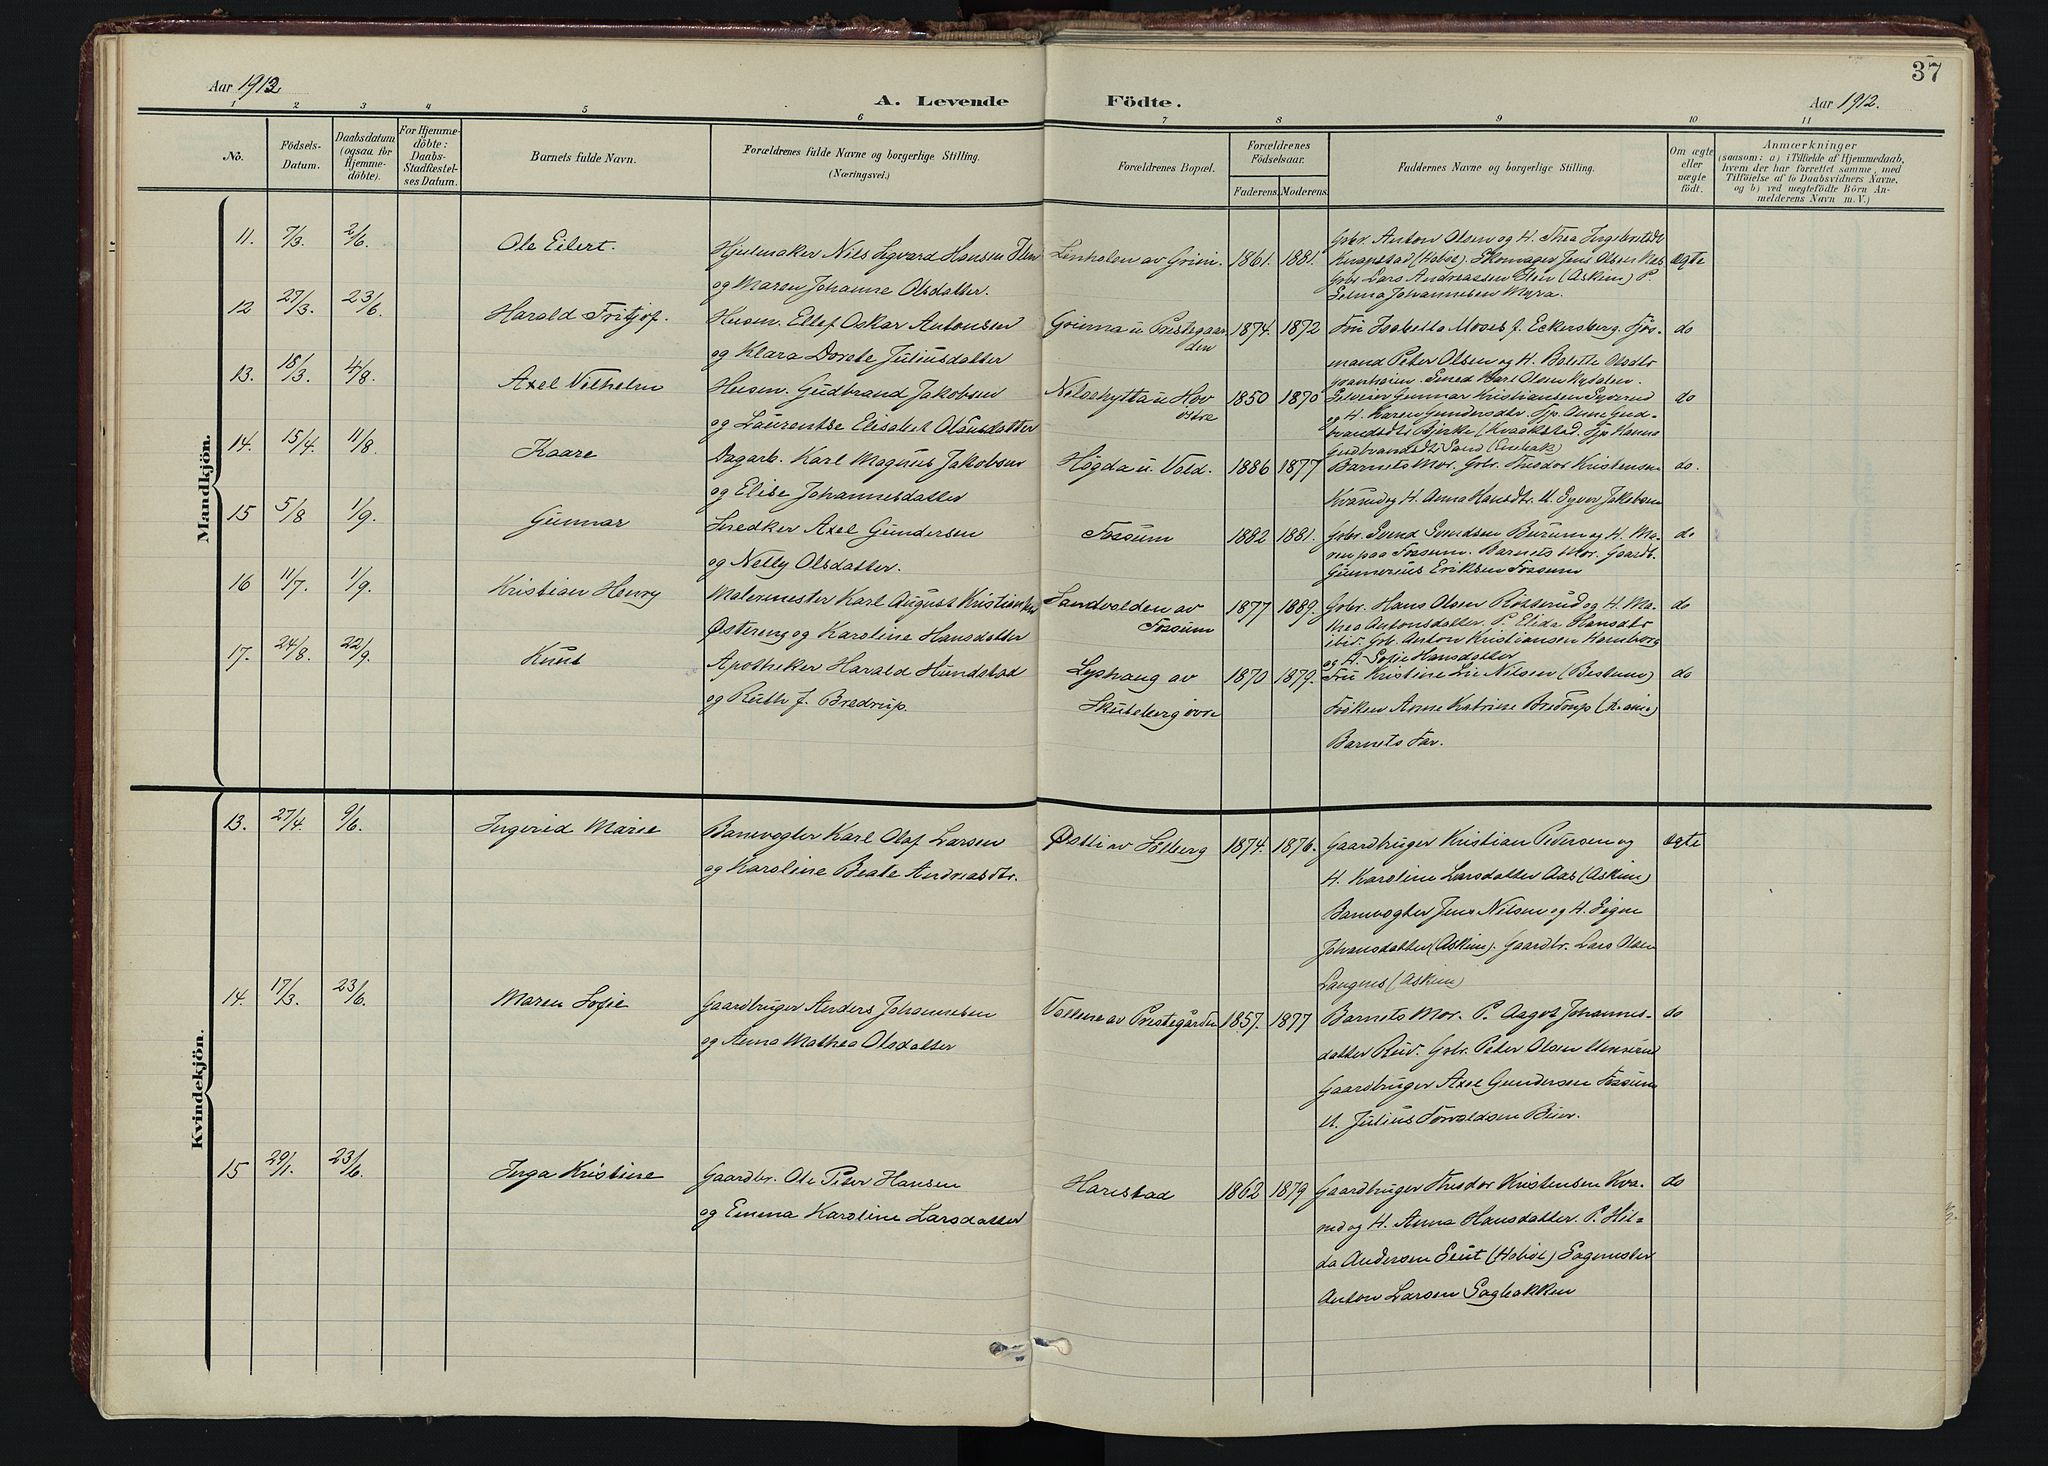 37
Aar 1912.
A. Levende Födte.
Aar 1912.
1 2 3 4 5 6 7 8 9 10 11
No.
Födsels-Datum.
Daabsdatum (ogsaa for Hjemme-döbte).
For Hjemme-döbte: Daabs-Stadfæstel-ses Datum.
Barnets fulde Navn.
Forældrenes fulde Navne og borgerlige Stilling.
(Næringsvei.)
Forældrenes Bopæl.
Forældrenes Födselsaar.
Faderens. Moderens.
Faddernes Navne og borgerlige Stilling.
Om ægte eller uægte födt.
Anmærkninger
(saasom: a) i Tilfælde af Hjemmedaab,
hvem der har forrettet samme, med
Tilföielse af to Daabsvidners Navne,
og b) ved uægtefödte Börn An-
melderens Navn m.V.)
Mandkjön.
11. 7/3. 2/6. Ole Eilert. Hjulmaker Nils Sigvard Hansen
og Maren Johanne Olsdatter.
1861. 1881. Gbr. Anton Olsen og H. Thea
Knapstad (Hobøl). Skomager Jens Olsen
Gbr. Lars Andreassen (Askim) P.
Selma Johannesen Myra.
ægte
12 27/3. 23/6. Harald Fritjof. Husm. Ellef Oskar Antonsen
og Klara Dorete Juliusdatter
Grimma u. Prestegaar
den
1874. 1872 Fru Isabella Moses f. Eckersberg. Fjøs-
mand Peter Olsen og H. Bolette Olsdtr
Smed Karl Olsen
do
13. 18/3. 4/8. Axel Vilhelm Husm. Gudbrand Jakobsen
og Laurentse Elisabet Olausdatter
Nilsehytta u Hov
østre
1850 1870 Gunnar Kristiansen
og H. Karen Gundersdtr. Anne Gud-
brandsdtr Bjerke (Kraakstad.
Gudbrandsdtr Sand (Enebak)
do
14. 15/4. 11/8. Kaare Dagarb. Karl Magnus Jakobsen
og Elise Johannesdatter
Høgda u. Vold. 1886 1877 Barnets Mor. Gbr. Theodor Kristensen
og H. Anna Hansdtr. U. Syver Jakobsen
do.
15 5/8 1/9. Gunnar Snedker Axel Gundersen
og Nelly Olsdatter.
Fossum 1882 1881. Gbr. Svend Svendsen Burum og H. Ma-
ren paa Fossum. Barnets Mor. Gaardb.
Gunnerius Eriksen Fossum
do
16 11/7. 1/9. Kristian Henry Malermester Karl August Kristiansen
Østereng og Karoline Hansdatter
Sandvolden av
Fossum
1877 1889. Gbr. Hans Olsen Rosserud og H. Ma-
thea Antonsdatter. P. Elida Hansdtr
ibid. Gbr. Anton Kristiansen Hamborg
og H. Sofie Hansdatter
do
17. 24/8. 22/9. Knut Apotheker Harald Hundstad
og Ruth f. Bredrup.
Lyshaug av
Skuleberg övre
1870 1879. Fru Kristine Lie Nilsen (Bestum)
Frøken Anne Katrine Bredrup (Kr.ania)
Barnets Far.
do
Kvindekjön.
13. 27/4. 9/6. Ingerid Marie Banevogter Karl Olaf Larsen
og Karoline Beate Andreasdtr.
Østti av Solberg 1874. 1876. Gaardbruger Kristian Pedersen og
H. Karoline Larsdatter Aas (Askim)
Banevogter Jens Nilsen og H. Signe
Johansdatter (Askim). Gaardbr. Lars Olsen
Langnes (Askim)
ægte
14. 17/3. 23/6. Maren Sofie Gaardbruger Anders Johannesen
og Anna Mathea Olsdatter
Vollene av Prestegården 1857. 1877 Barnets Mor. P. Aagot Johannes-
datter Rud. Gbr. Peter Olsen
Gaardbruger Axel Gundersen Fossum
U. Julius Torvaldsen Buer.
do
15 29/1. 23/6. Inga Kristine Gaardbr. Ole Peter Hansen
og Emma Karoline Larsdatter
Harestad 1862 1879 Gaardbruger Theodor Kristensen Kva-
og H. Anna Hansdatter. P. Hil-
da Andersen (Hobøl) Sagmester
Anton Larsen Sagbakken
do